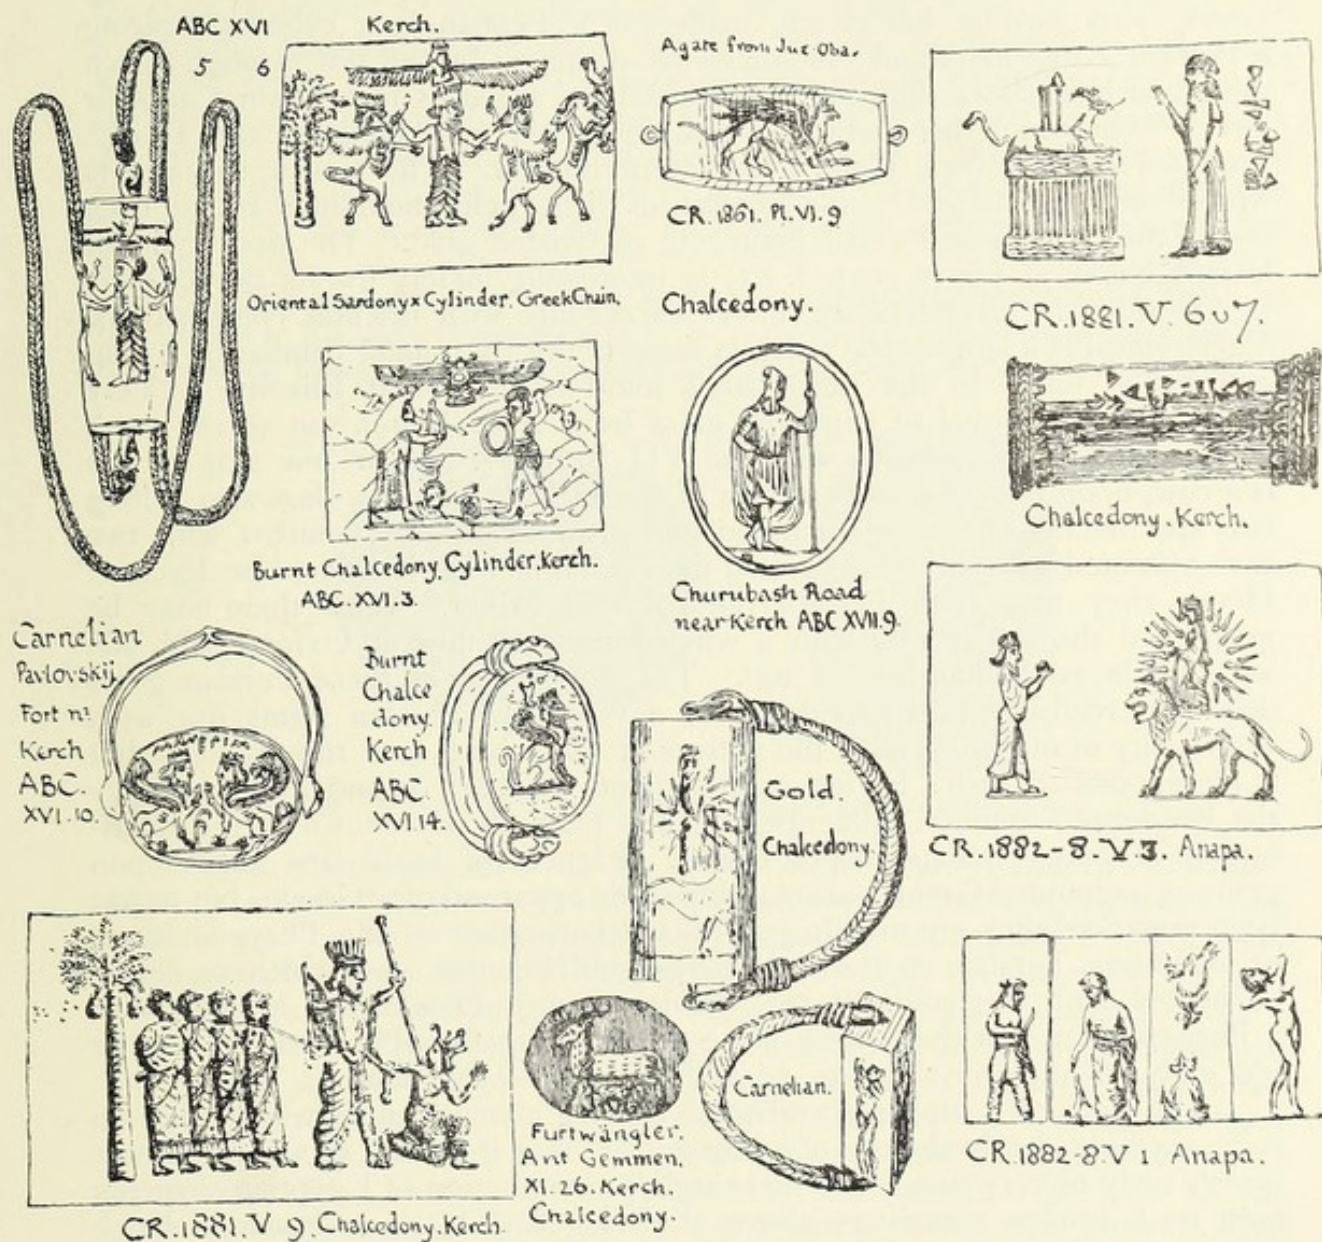 ABC XVI
5 6
Kerch.
Oriental Sardonyx Cylinder. Greek Chain.
Agate from Juz Oba.
CR. 1861. Pl. VI. 9
CR. 1881. V. 6 u 7.
Chalcedony. Kerch.
Burnt Chalcedony. Cylinder. Kerch.
ABC. XVI. 3.
Chalcedony.
Churubash Road
near Kerch ABC XVII. 9.
Carnelian
Pavlovskij
Fort nr
Kerch
ABC.
XVI. 10.
Burnt
Chalce
dony.
Kerch
ABC.
XVI. 14.
Gold.
Chalcedony.
CR. 1882-8. V. 3. Anapa.
CR. 1881. V 9. Chalcedony. Kerch.
Furtwängler.
Ant Gemmen.
XI. 26. Kerch.
Chalcedony.
Carnelian.
CR. 1882-8. V 1 Anapa.